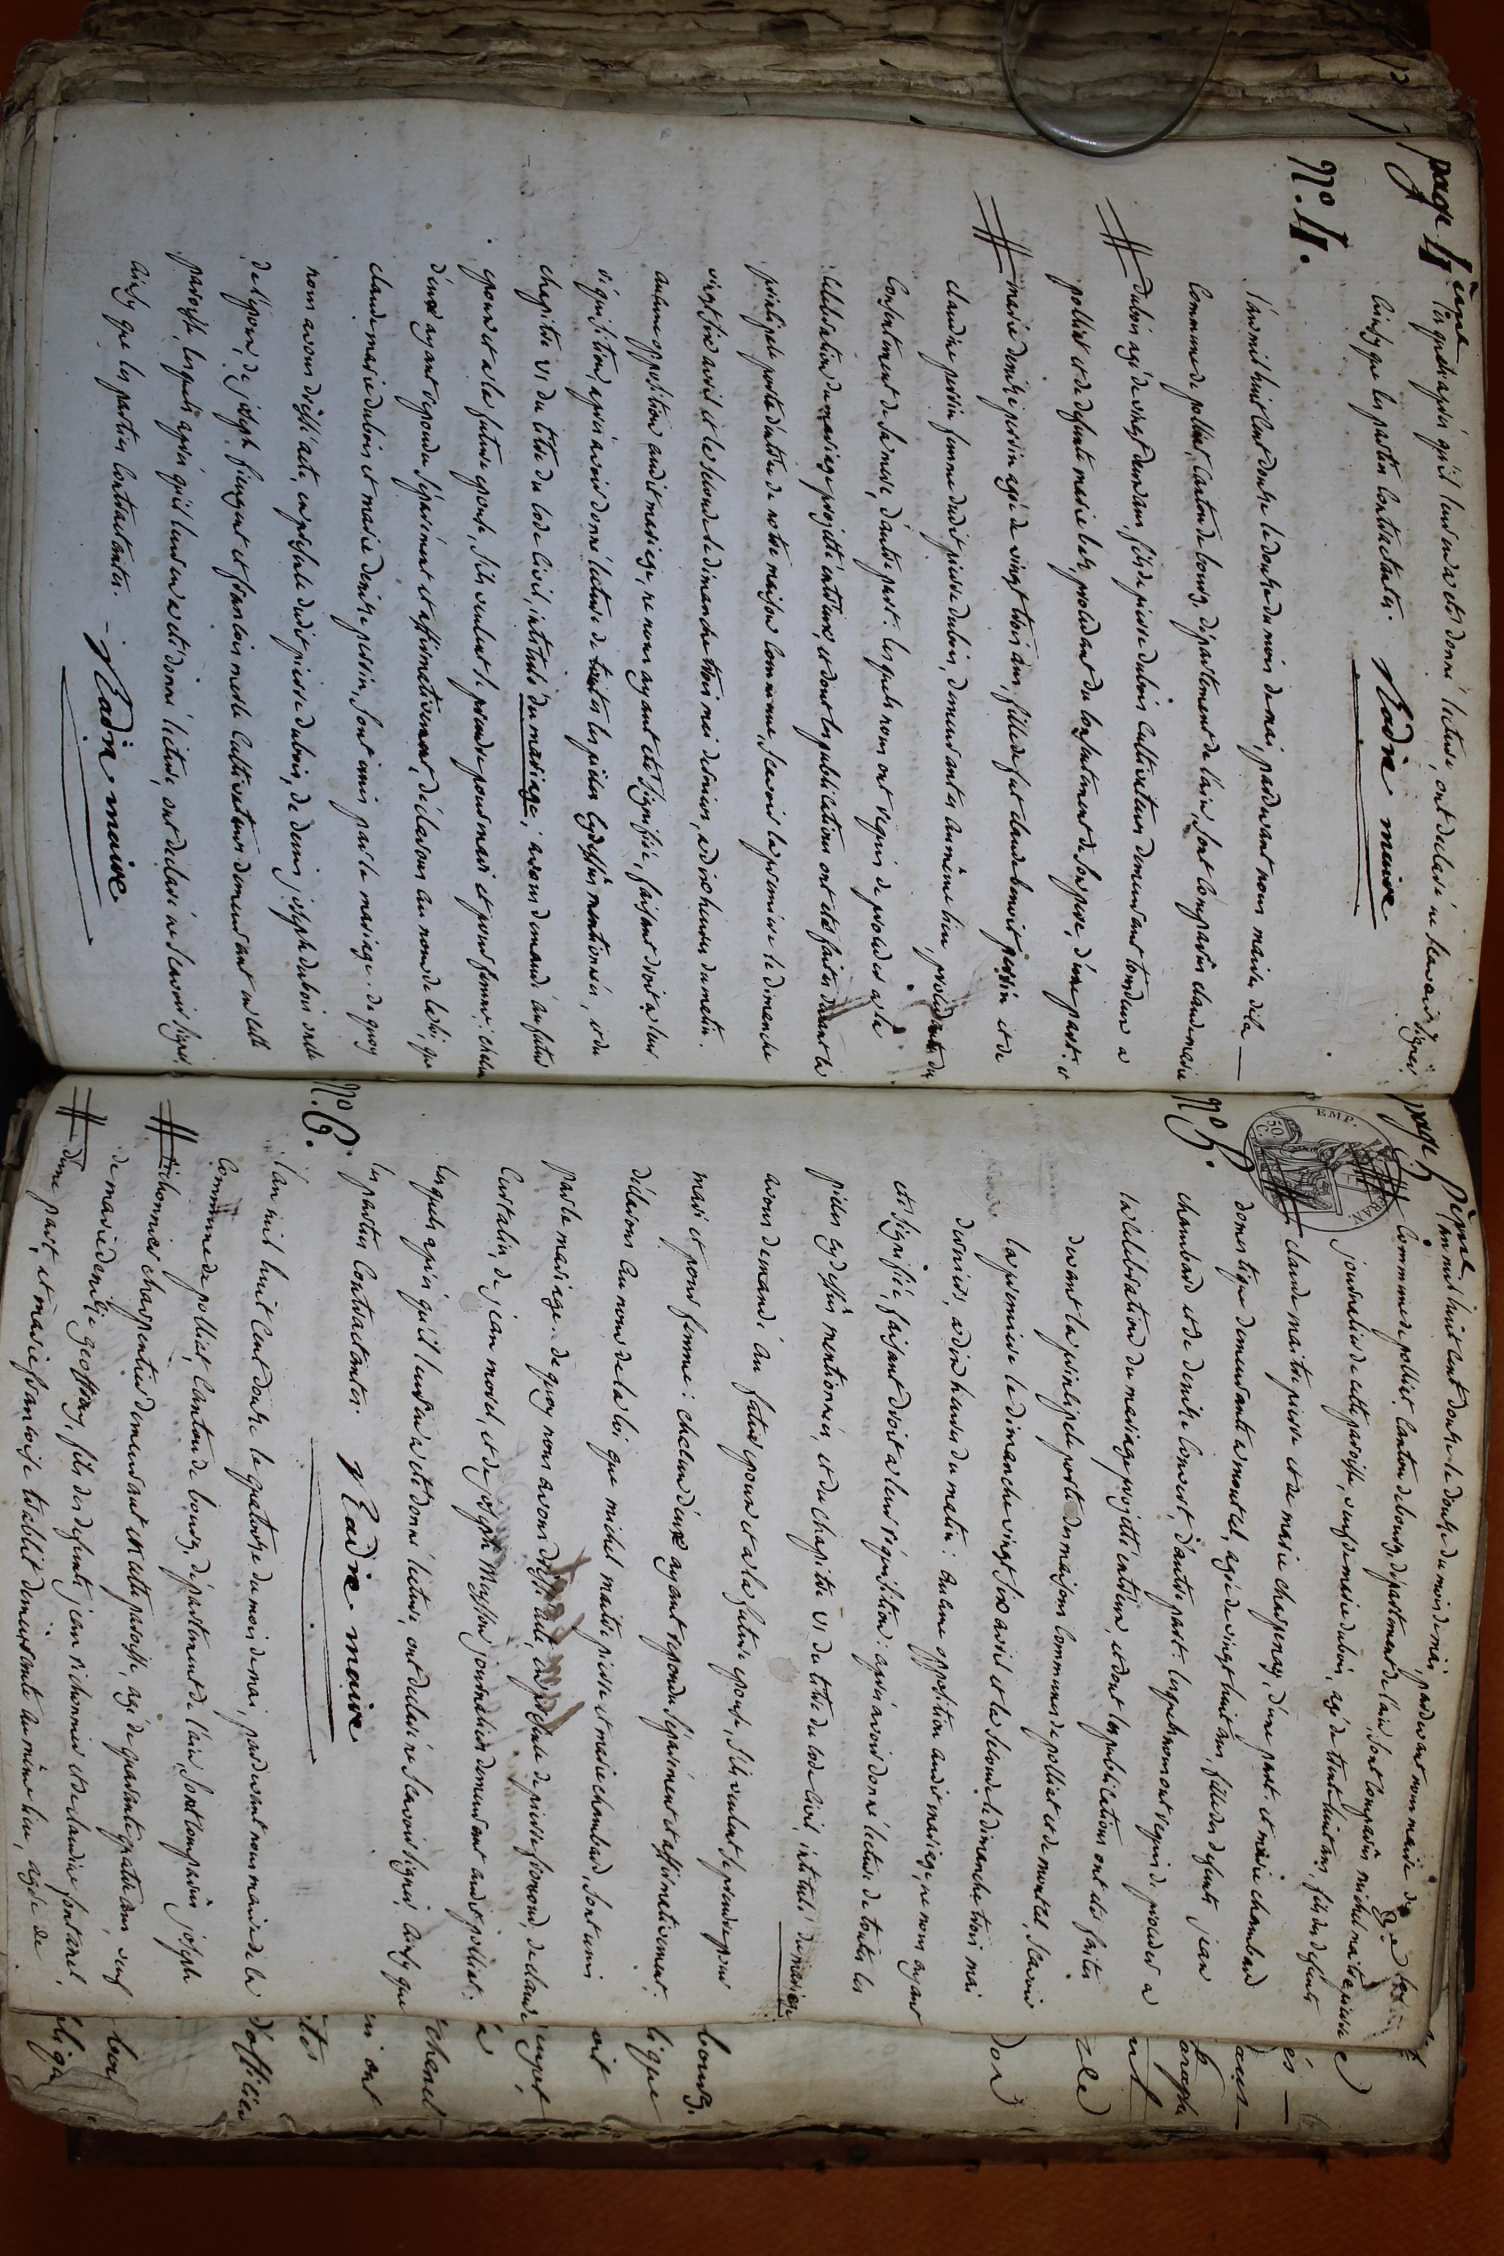 page 4ème
les quels après qu'il leur en a été donné lecture, ont declaré ne scavoir signer
ainsy que les parties contractantes. Nadin maire
N.o 4.
l'an mil huit cent douze le douze du mois de mai, pardevant nous maire de la
commune de polliat, canton de bourg, département de l'ain, sont comparus claude marie
dubois agé de vingt deux ans, fils de pierre dubois cultivateur demeurant
polliat et de defunte marie procedant du consentement de son père, d'une part: et
marie denise perrin agée de vingt trois ans, fille de feu claude benoit perrin et de
claudine perrin femme dudit pierre dubois, demeurantes au même lieu, procedante du
consentement de sa mere, d'autre part: lesquels nous ont requis de proceder a la
célébration du mariage projetté entr'eux, et dont les publications ont été faites devant la
principale porte d'entrée de notre maison commune, scavoir la premiere le dimanche
vingt six avril et la seconde le dimanche trois mai derniers, a dix heures du matin.
aucune opposition audit mariage, ne nous ayant été signifiée, faisant droit a leur
réquisition, après avoir donné lecture de toutes les pièces cydessus mentionnées, et du
chapitre VI du titre du code civil, intitulé du mariage; avons demandé au futur
epoux et a la future epouse, s'ils veulent se prendre pour mari et pour femme: chacun
d'eux ayant repondu séparément et affirmativement, déclarons au nom de la loi que
claude marie dubois et marie denise perrin, sont unis par le mariage. de quoy
nous avons dressé acte, en présence dudit pierre dubois, de denis joseph dubois
de l'epoux, de joseph et francois merle cultivateurs demeurant en cette
paroisse, lesquels après qu'il leur en a été donné lecture, ont declaré ne scavoir signer,
ainsy que les parties contractantes. Nadin maire
page 5ème
N.o 5.
EMP. FRAN
50 C.
l'an mil huit cent douze le douze du mois de mai, pardevant nous maire de la
commune de polliat canton de bourg, département de l'ain, sont comparus michel maitre pierre
journalier de cette paroisse, veuf de marie dubois, agé de trente huit ans fils des defunts
claude maitre pierre et de marie charpenay, d'une part: et marie chambard
domestique demeurante a montcel, agée de vingt huit ans, fille des defunts jean
chambard et de denise convert, d'autre part: lesquels nous ont requis de proceder a
la célébration du mariage projetté entr'eux, et dont les publications ont été faites
devant la principale porte des maisons communes de polliat et de montcel, scavoir
la premiere le dimanche vingt six avril et la seconde le dimanche trois mai
derniers, a dix heures du matin: aucune opposition audit mariage, ne nous ayant
été signifiée, faisant droit a leur réquisition: après avoir donné lecture de toutes les
pièces cydessus mentionnées, et du chapitre VI du titre du code civil, intitulé du mariage
avons demandé au futur epoux et a la future epouse, s'ils veulent se prendre pour
mari et pour femme: chacun d'eux ayant repondu séparément et affirmativement.
déclarons au nom de la loi que michel maitre pierre et marie chambard, sont unis
par le mariage. de quoy nous avons dressé acte, en présence de pierre fromond, de claude
de jean morel, et de joseph journaliers demeurant audit polliat:
lesquels après qu'il leur en a été donné lecture, ont declaré ne scavoir signer, ainsy que
les parties contractantes. Nadin maire
N.o 6.
l'an mil huit cent douze le quatorze du mois de mai, pardevant nous maire de la
commune de polliat, canton de bourg, département de l'ain, sont comparus joseph
tichonnier charpentier demeurant en cette paroisse, agé de quarante quatre ans, veuf
de marie denise geoffray, fils des defunts jean tichonnier et de claudine fontanel,
d'une part, et marie francoise demeurante au même lieu, agée de